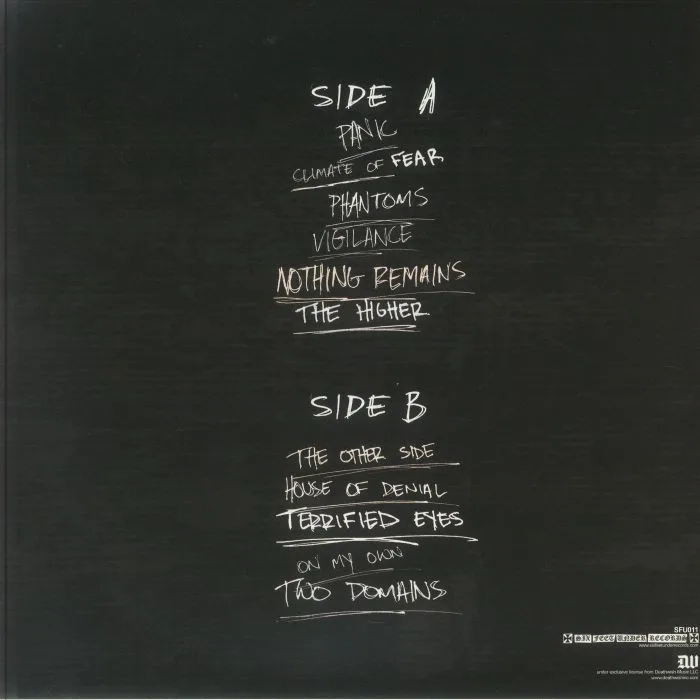 SIDE A
PANIC
CLIMATE OF FEAR
PHANTOMS
VIGILANCE
NOTHING REMAINS
THE HIGHER
SIDE B
THE OTHER SIDE
HOUSE OF DENIAL
TERRIFIED EYES
ON MY OWN
TWO DOMAINS
SFU011
SIX FEET UNDER RECORDS
www.sixfeetunderrecords.com
DW
under exclusive license from Deathwish Music LLC
www.deathwishinc.com